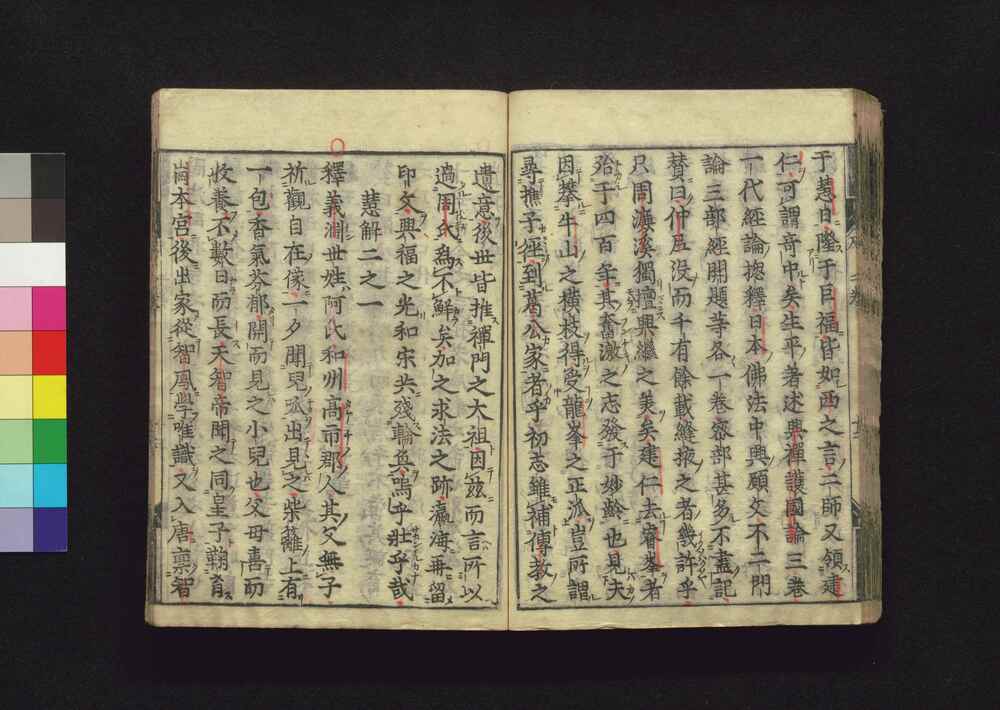 于慧日隆于巨福皆如西之言二師又領建
仁可謂奇中矣生平著述興禪護國論三巻
一代經論捴釋日本佛法中興願文不二門
論三部經開題等各一卷密部甚多不盡記
賛曰仲尼没而千有餘載縫掖之者幾許乎
只周濂溪獨擅興繼之美矣建仁去睿峯者
殆于四百年其奮激之志發于妙齡也見夫
因攀牛山之横枝得受龍峯之正派豈所謂
尋撫子徑到葛公家者乎初志雖補傳教之
遺意後世皆推禪門之大祖因茲而言所以
過周氏為不鮮矣加之求法之跡瀛海毋留
印文興福之光和宋共殘輪奐嗚乎壯乎哉
慧解二之一
釋義淵世姓阿氏和州高市郡人其父無子
祈觀自在像一夕聞兒呱出見之柴籬上有
一包香氣芬郁開而見之小兒也父母喜而
收養不數日而長天智帝聞之同皇子鞠育
崗本宮後出家從智鳳學唯識又入唐禀智